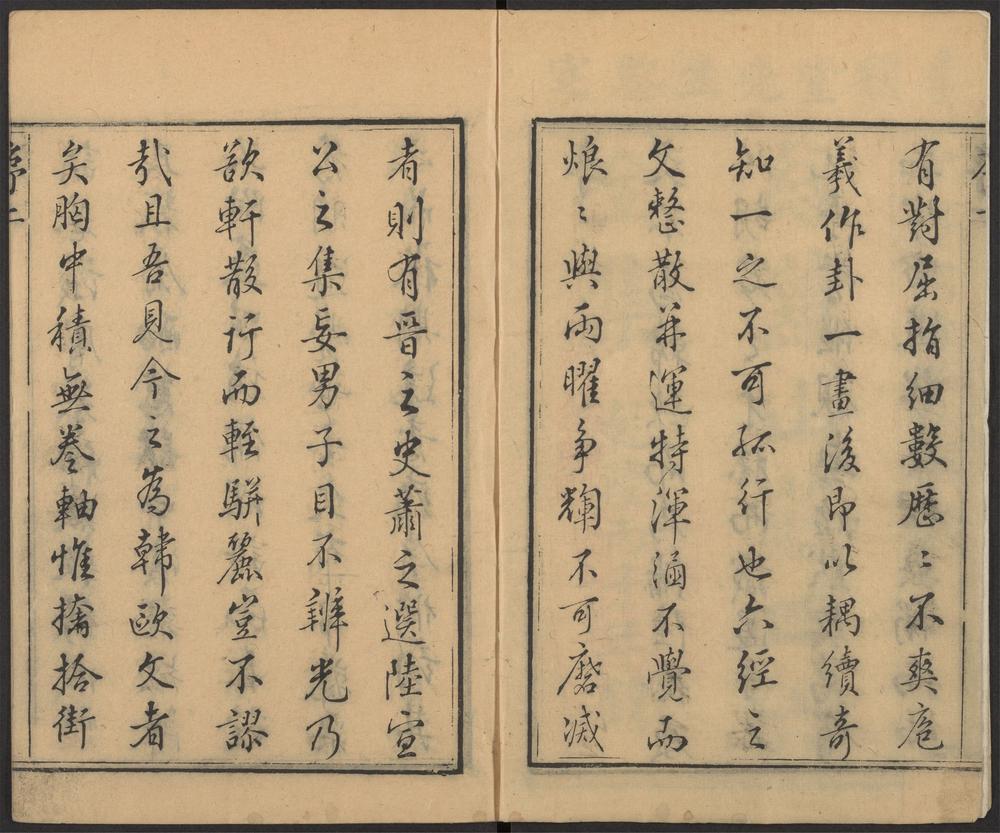 有對屈指細數歷〻不爽庖
羲作卦一畫後即以耦續奇
知一之不可孤行也六經之
文整散並運特渾涵不覺而
烺〻與兩曜爭斕不可磨滅
者則有晋之史蕭之選陸宣
公之集妄男子目不辨光乃
欲軒散行而輊駢麗豈不謬
㢤且吾見今之為韓歐文者
矣胸中積無卷軸惟擒拾街
序二